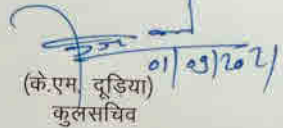 01/09/2021
(के.एम. दूड़िया)
कुलसचिव